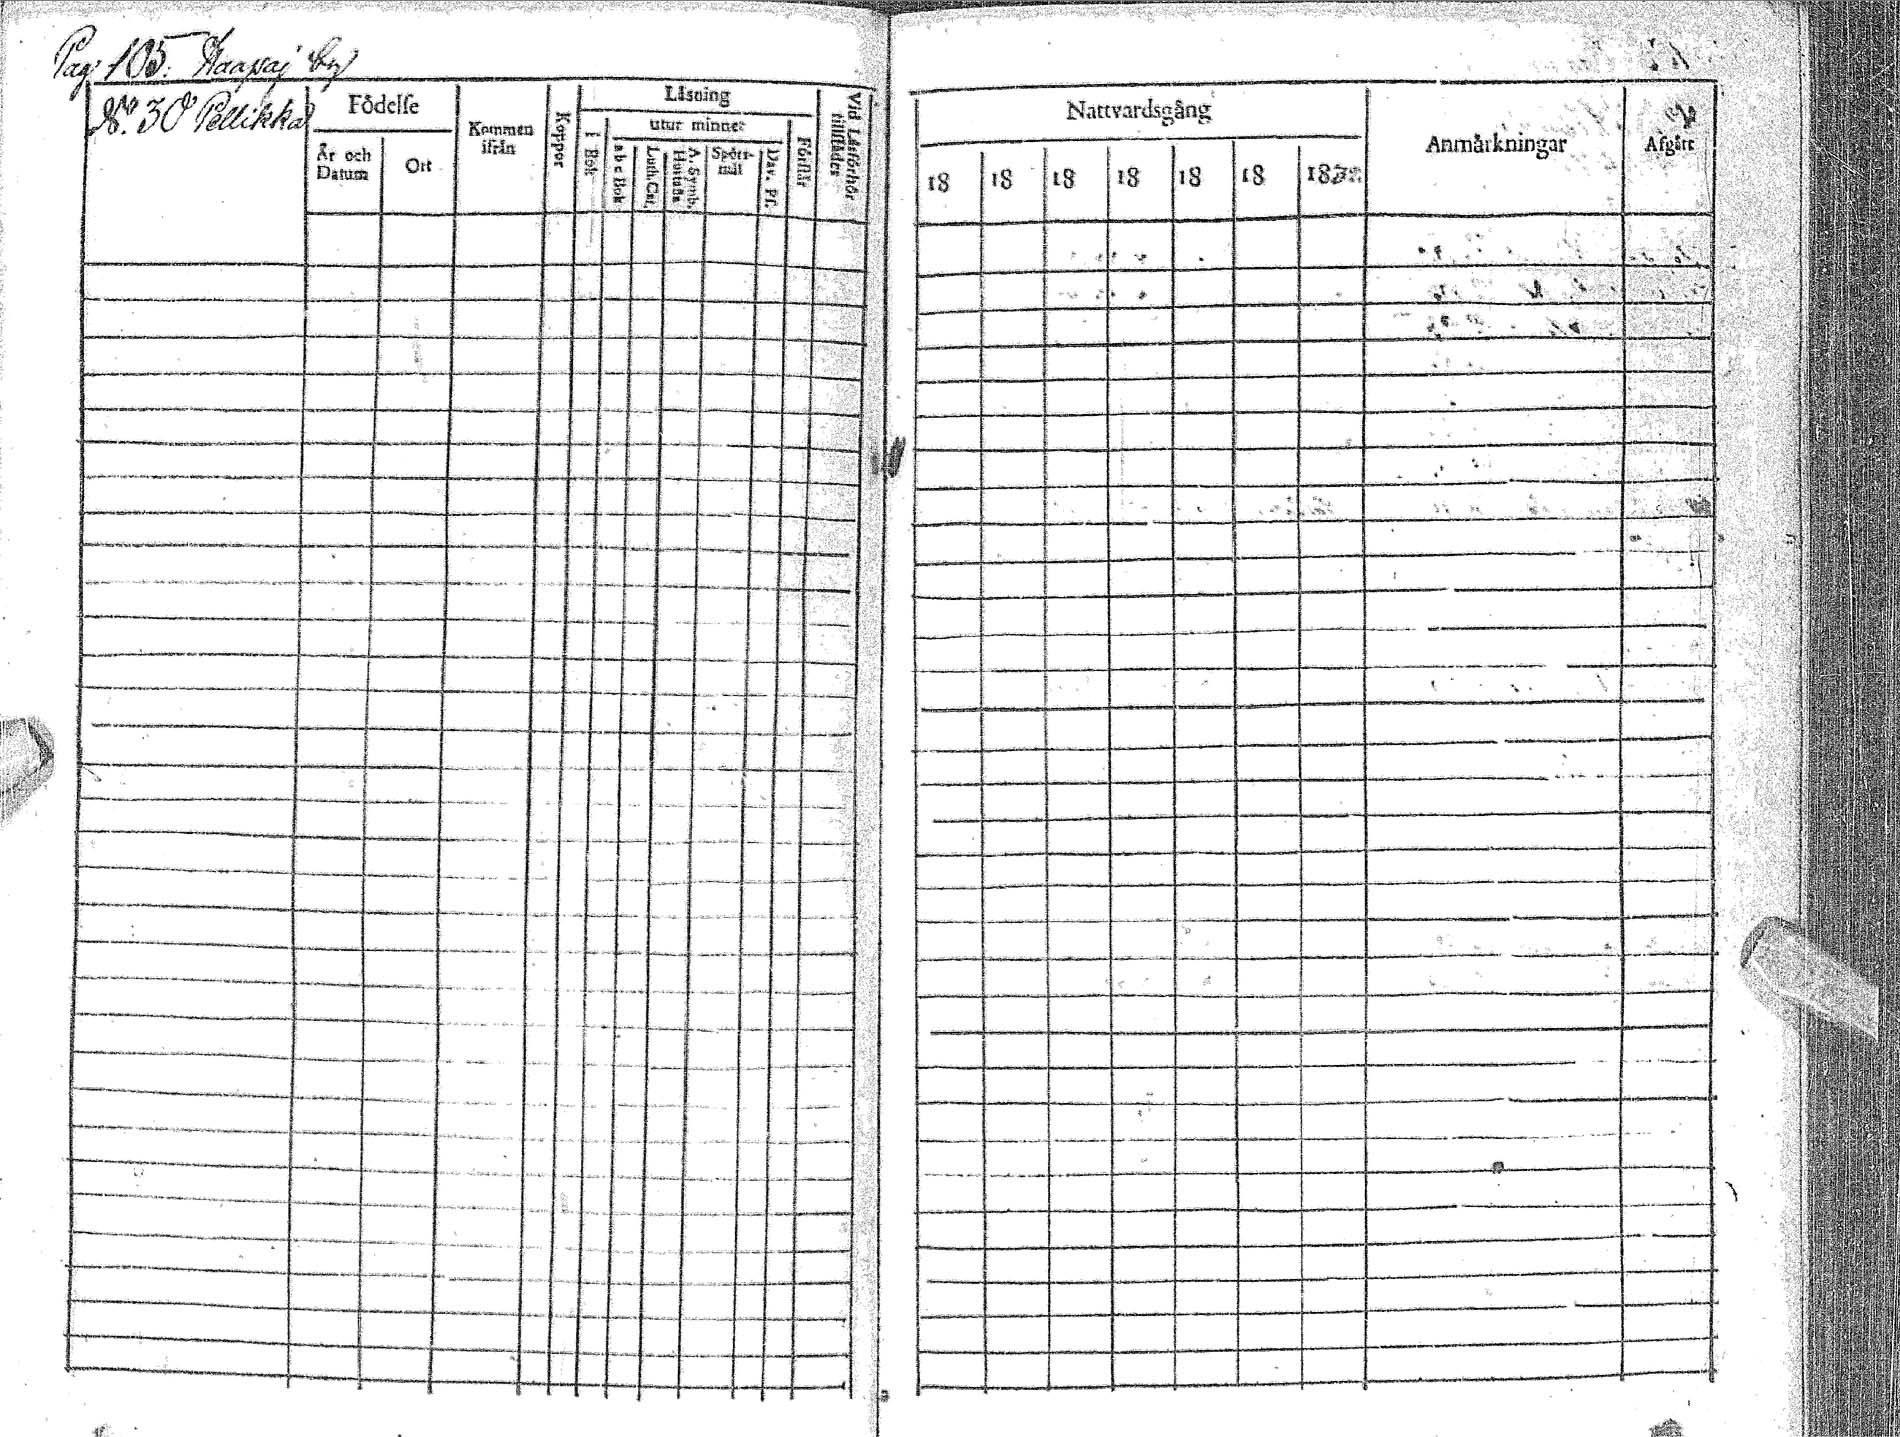 Pag. 105. Haapaj by
No. 30 Pellikka
Födelse
År och Datum
Ort
Kommen ifrån
Koppor
Läsning
i Bok
utur minnet
abc Bok
Luth. Cat.
A. Symb. Hustafla
Spörs-mål
Dav. Ps.
Förstår
Vid Läsförhör tillstådes
Nattvardsgång
18 18 18 18 18 18 18
Anmärkningar
Afgått